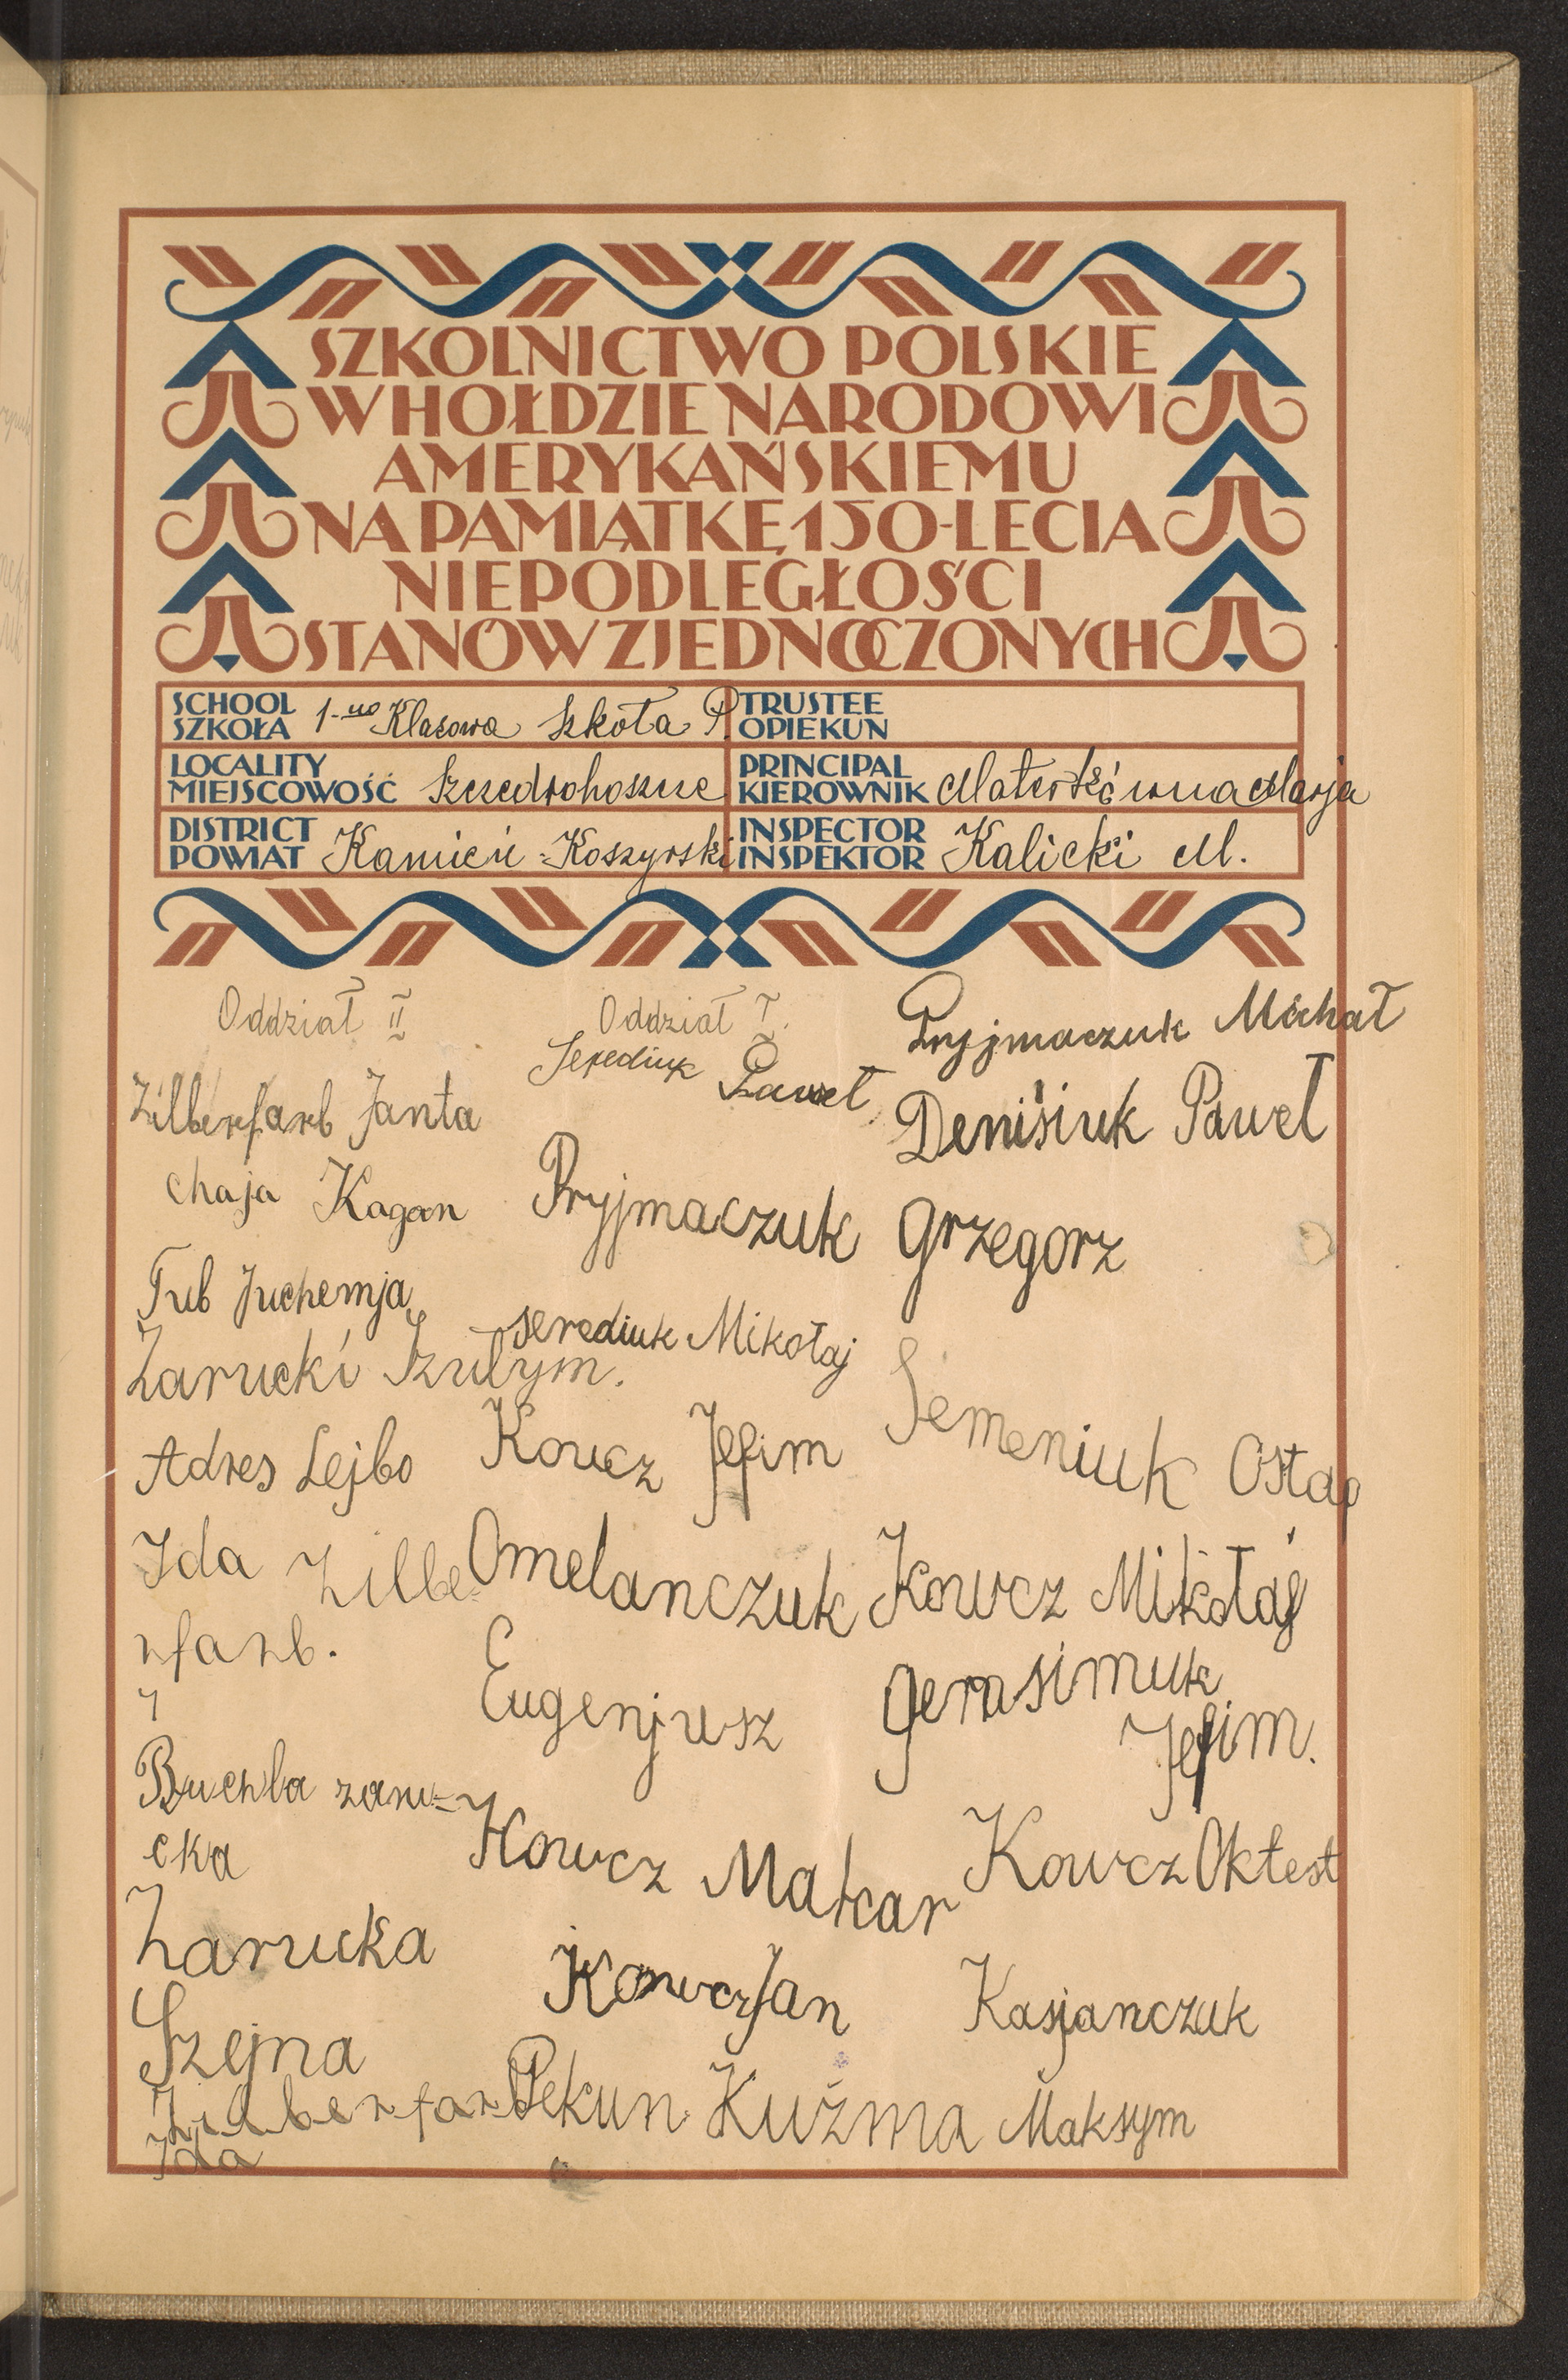 SZKOLNICTWO POLSKIE
W HOŁDZIE NARODOWI
AMERYKAŃSKIEMU
NA PAMIĄTKĘ 150-LECIA
NIEPODLEGŁOŚCI
STANÓW ZJEDNOCZONYCH
SCHOOL
SZKOŁA 1-no Klasowa Szkoła P.
TRUSTEE
OPIEKUN
LOCALITY
MIEJSCOWOŚĆ Szczedrohoszcze
PRINCIPAL
KIEROWNIK Marja
DISTRICT
POWIAT Kamień-Koszyrski
INSPECTOR
INSPEKTOR Kalicki M.
Oddział II
Zilberfarb Janta
Chaja Kagan
Tub Juchemja
Zarucki Szulym.
Adres Lejbo
Ida Zilbe-
rfarb.
Bruchla zaru-
cka
Zarucka
Szejna
Zilberfarb
Ida
Oddział I.
Serediuk Paweł
Pryjmaczuk Grzegorz
serediuk Mikołaj
Kowcz Jefim
Omelanczuk
Eugenjusz
Kowcz Makar
Kowcz Jan
Pekun Kuźma
Pryjmaczuk Michał
Denisiuk Paweł
Semeniuk Ostap
Kowcz Mikołaj
Gerasimuk
Jefim.
Kowcz Oktest
Kasjanczuk
Maksym